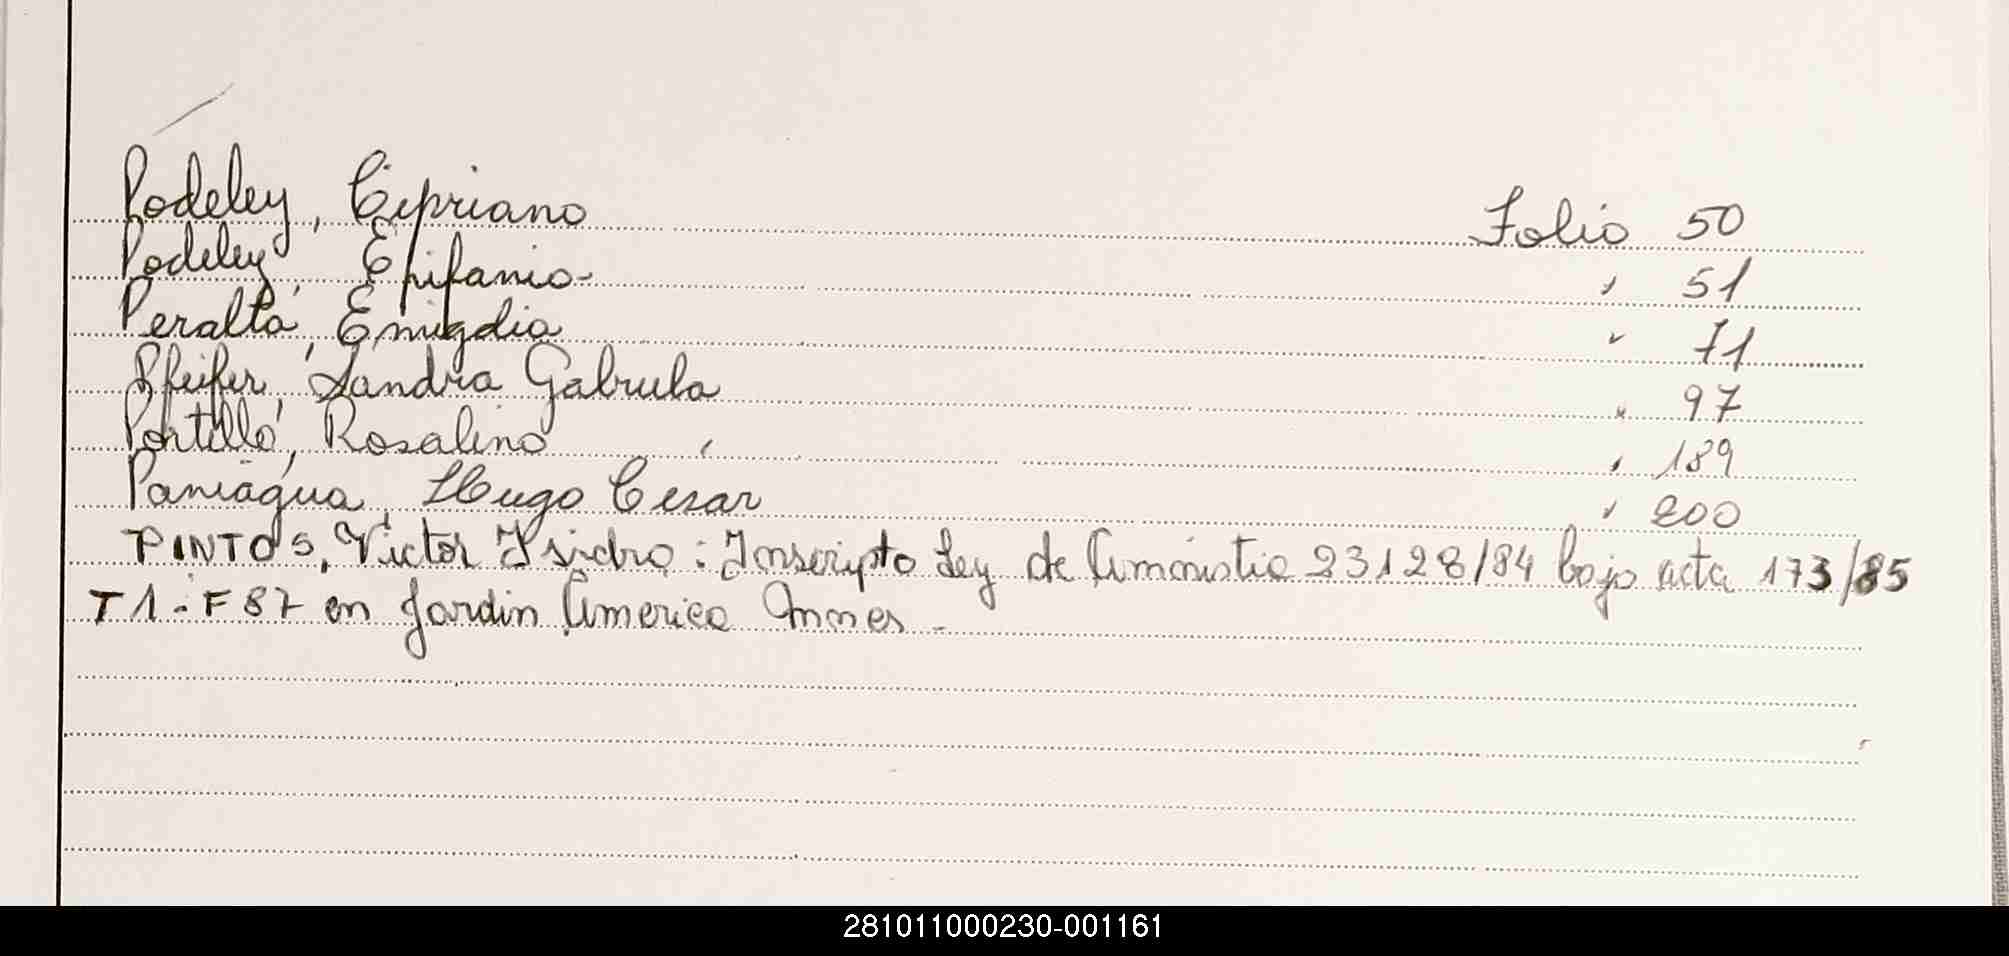 Podeley, Cipriano Folio 50
Podeley, Epifanio- " 51
Peralta, Emigdia " 71
Pfeifer, Sandra Gabriela " 97
Portillo, Rosalino " 189
Paniagua, Hugo Cesar " 200
PINTOS, Victor Isidro: Inscripto Ley de Amnistia 23128/84 bajo acta 173/85
T1-F87 en Jardin America Mnes-
281011000230-001161